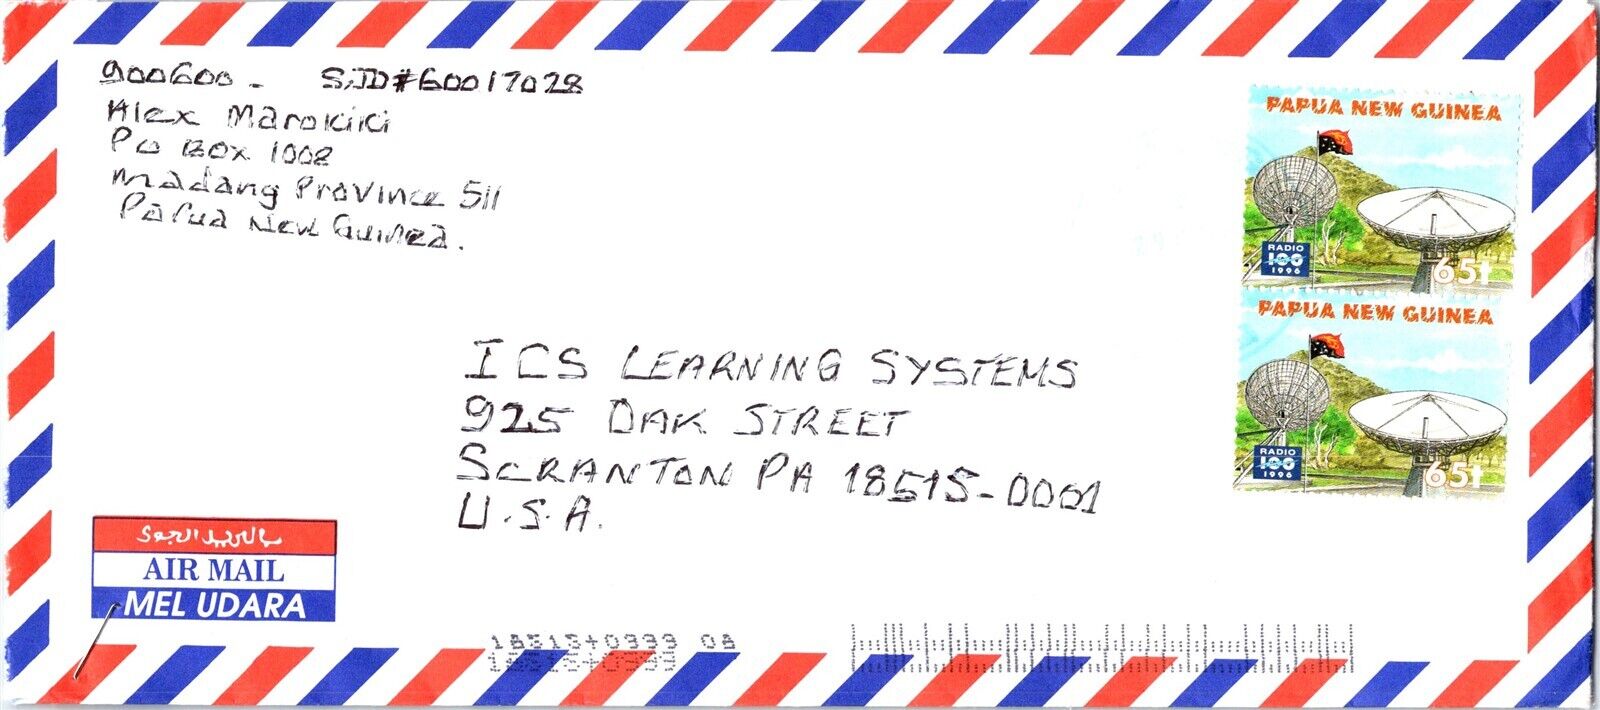 900600 - SID#60017028
Alex Marokiki
PO BOX 1008
Madang Province 511
Papua New Guinea.
PAPUA NEW GUINEA
RADIO
100
1996
65t
PAPUA NEW GUINEA
RADIO
100
1996
65t
ICS LEARNING SYSTEMS
925 OAK STREET
SCRANTON PA 18515-0001
U.S.A.
بالبريد الجوي
AIR MAIL
MEL UDARA
18515+0999 08
18515+0999